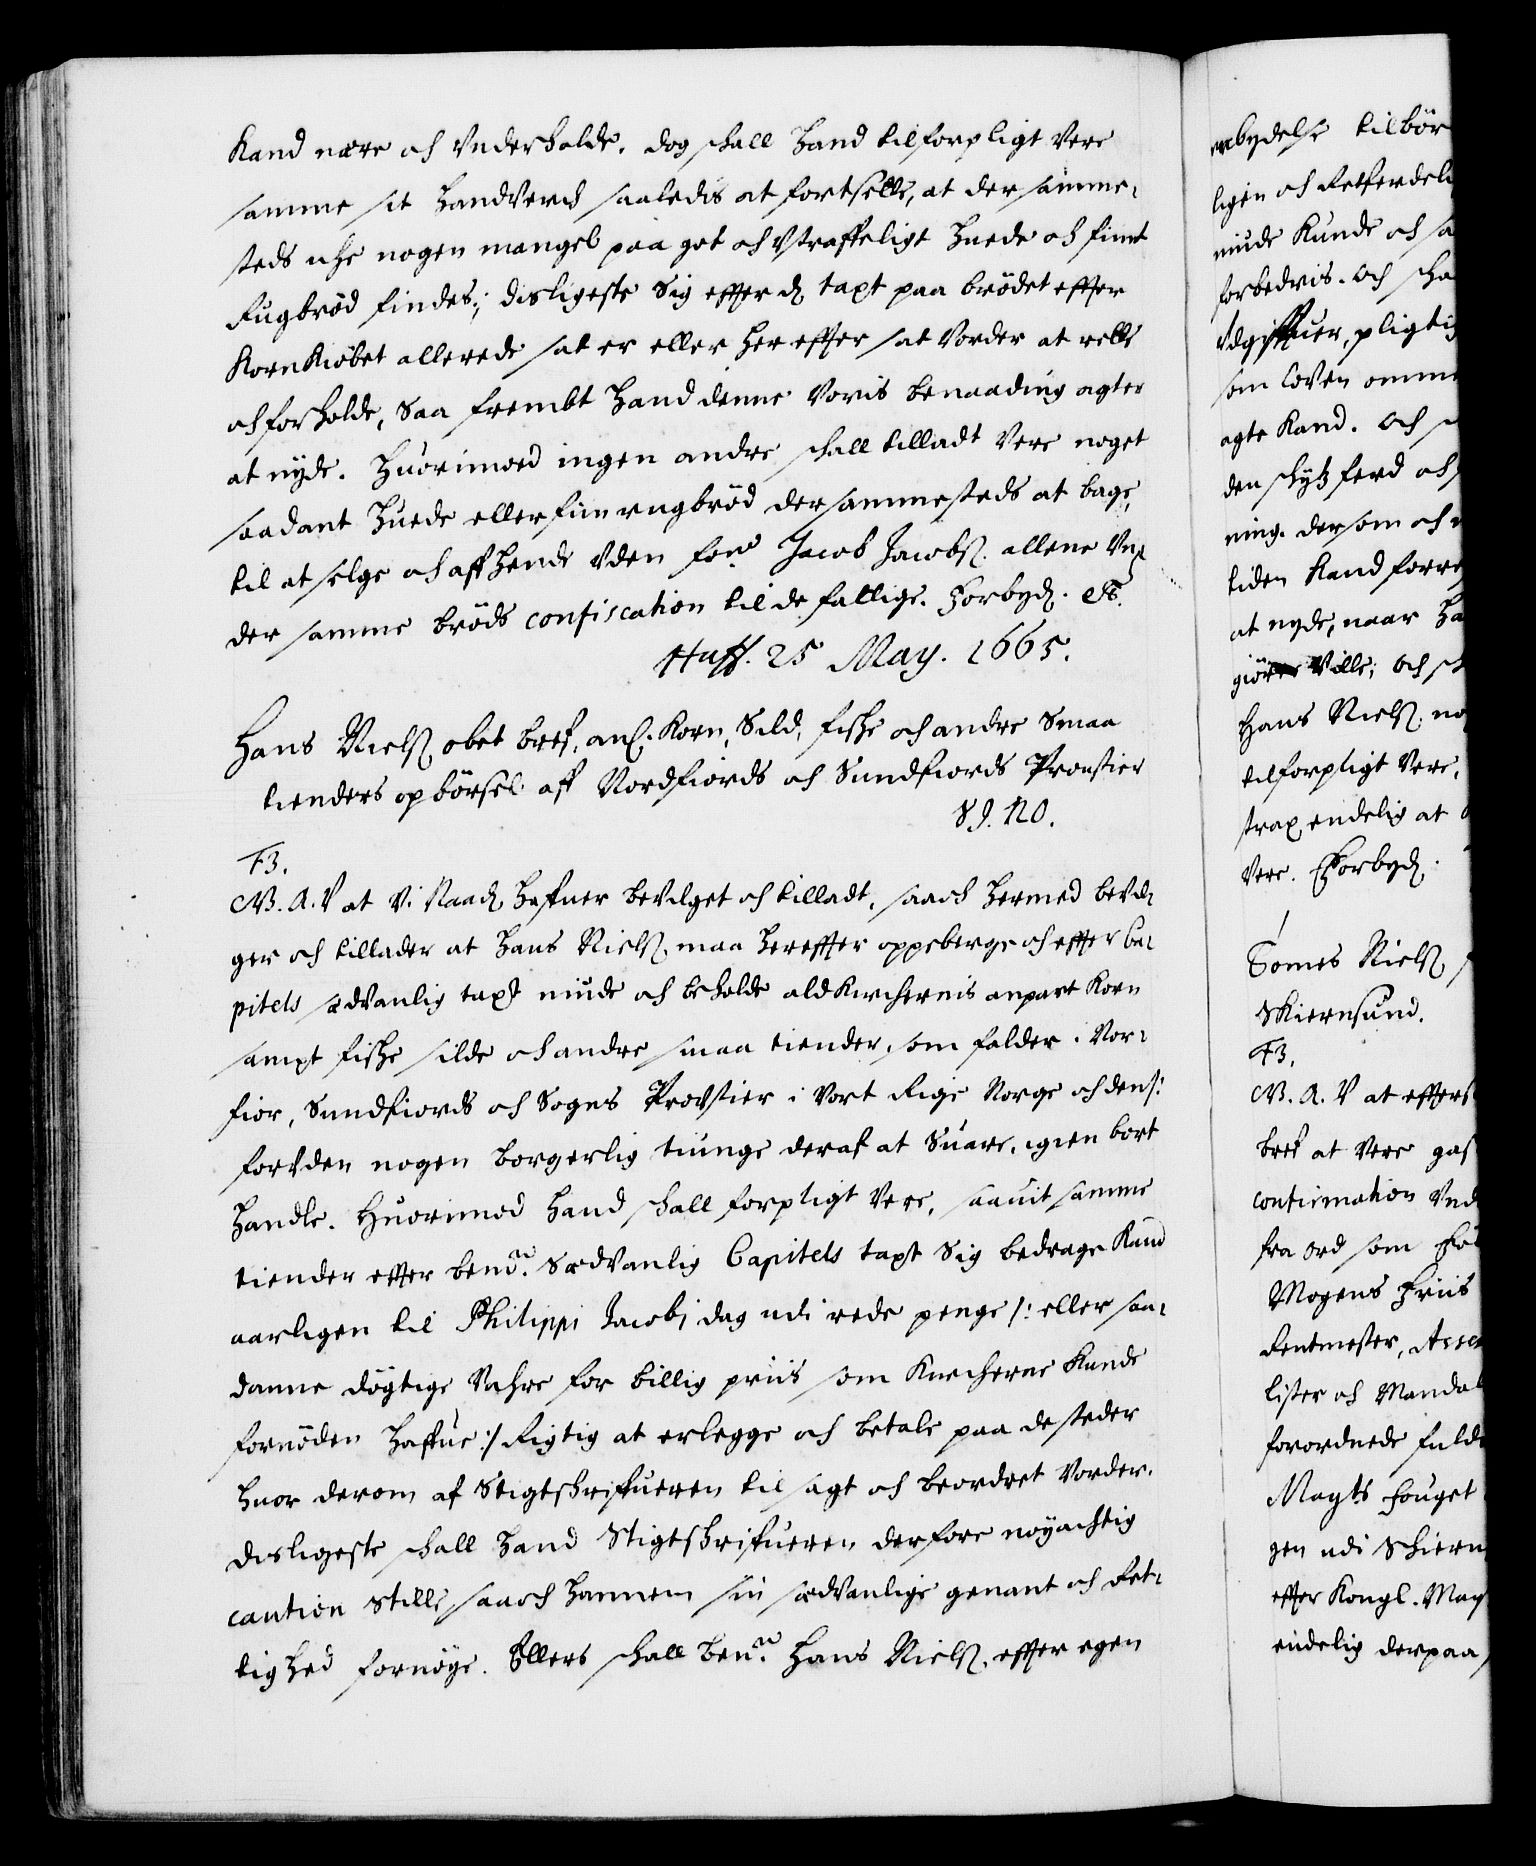 Kand nære och Vnderholde. dog schall hand tilforpligt Vere
samme sit handverch saaledis at fortsette, at der samme-
steds iche nogen mangel paa got och Vstraffeligt huede och finnt
Rugbrød findes; disligeste Sig effter den taxt paa brødet effter
Kornkiøbet allerede sat er eller her effter sat Vorder at rette
och forholde, Saa frembt hand denne Voris benaading agter
at nyde. Huorimod ingen andre schall tilladt Vere noget
saadant huede eller fiin rugbrød dersammesteds at bage,
til at selge och affhende Vden forne Jacob Jacobs. allene Vn-
der samme brøds confiscation til de fattige. Forbyd. Etc.
Haff. 25 May. 1665.
Hans Niels. obet bref, anl. Korn, Sild, fishe och andre Smaa
tienders opbørsel aff Nordfiords och Sundfiords Provstier
F3.
G. A. V at Vi Naad. haffuer beVilget och tilladt, saa och hermed beVil-
ger och tillader at Hans Niels. maa hereffter oppeberge och effter Ca-
pitels sædvanlig taxt niude och beholde ald Kirchernis anpart Korn
sampt fishe silde och andre smaa tiender, som falder i Nor-
fior, Sundfiords och Sogns Provstier i Vort Rige Norge och dens:
forVden nogen borgerlig tiunge deraf at Suare, igien bort
handle. Huorimod hand schall forpligt Vere, saauit samme
tiender effter bente Sædvanlig Capitels taxt Sig bedrage Kand
aarligen til Philippi Jacobi dag udi rede penge /: eller saa-
danne døgtige Vahre for billig priis som Kircherne Kunde
fornøden haffue :/ Rigtig at erlegge och betale paa de steder
huor derom af Stigtschrifueren tilsagt och beordret Vorder.
disligeste schall hand Stigtschrifueren derfore nøyachtig
caution Stille saa och hannem sin sædvanlige genant och Ret-
tighed fornøye. Ellers schall bente Hans Niels. effter egen
tilbør
ligen och Retferdeli
niude Kunde och sa
forbedris. Och scha
Vdgiffuer, pligtig
som loVen omme
agte Kand. Och
den och
ning. dersom och
tiden Kand forre
at nyde, naar ha
giøre Ville; Och sch
Hans Niels. no
tilforpligt Vere,
strax endelig at
Vere. Forbyd.
Tomes Niels.
Skiernsund.
F3.
G. A. V at effters
bref at Vere gaf
confirmation Vnd
fra Ord som
Mogens Friis
Rentmester, Asse
lister och Mandal
forordnede fuld
Mayts fouget
gen udi Schiern
effter Kongl. May
endelig derpaa